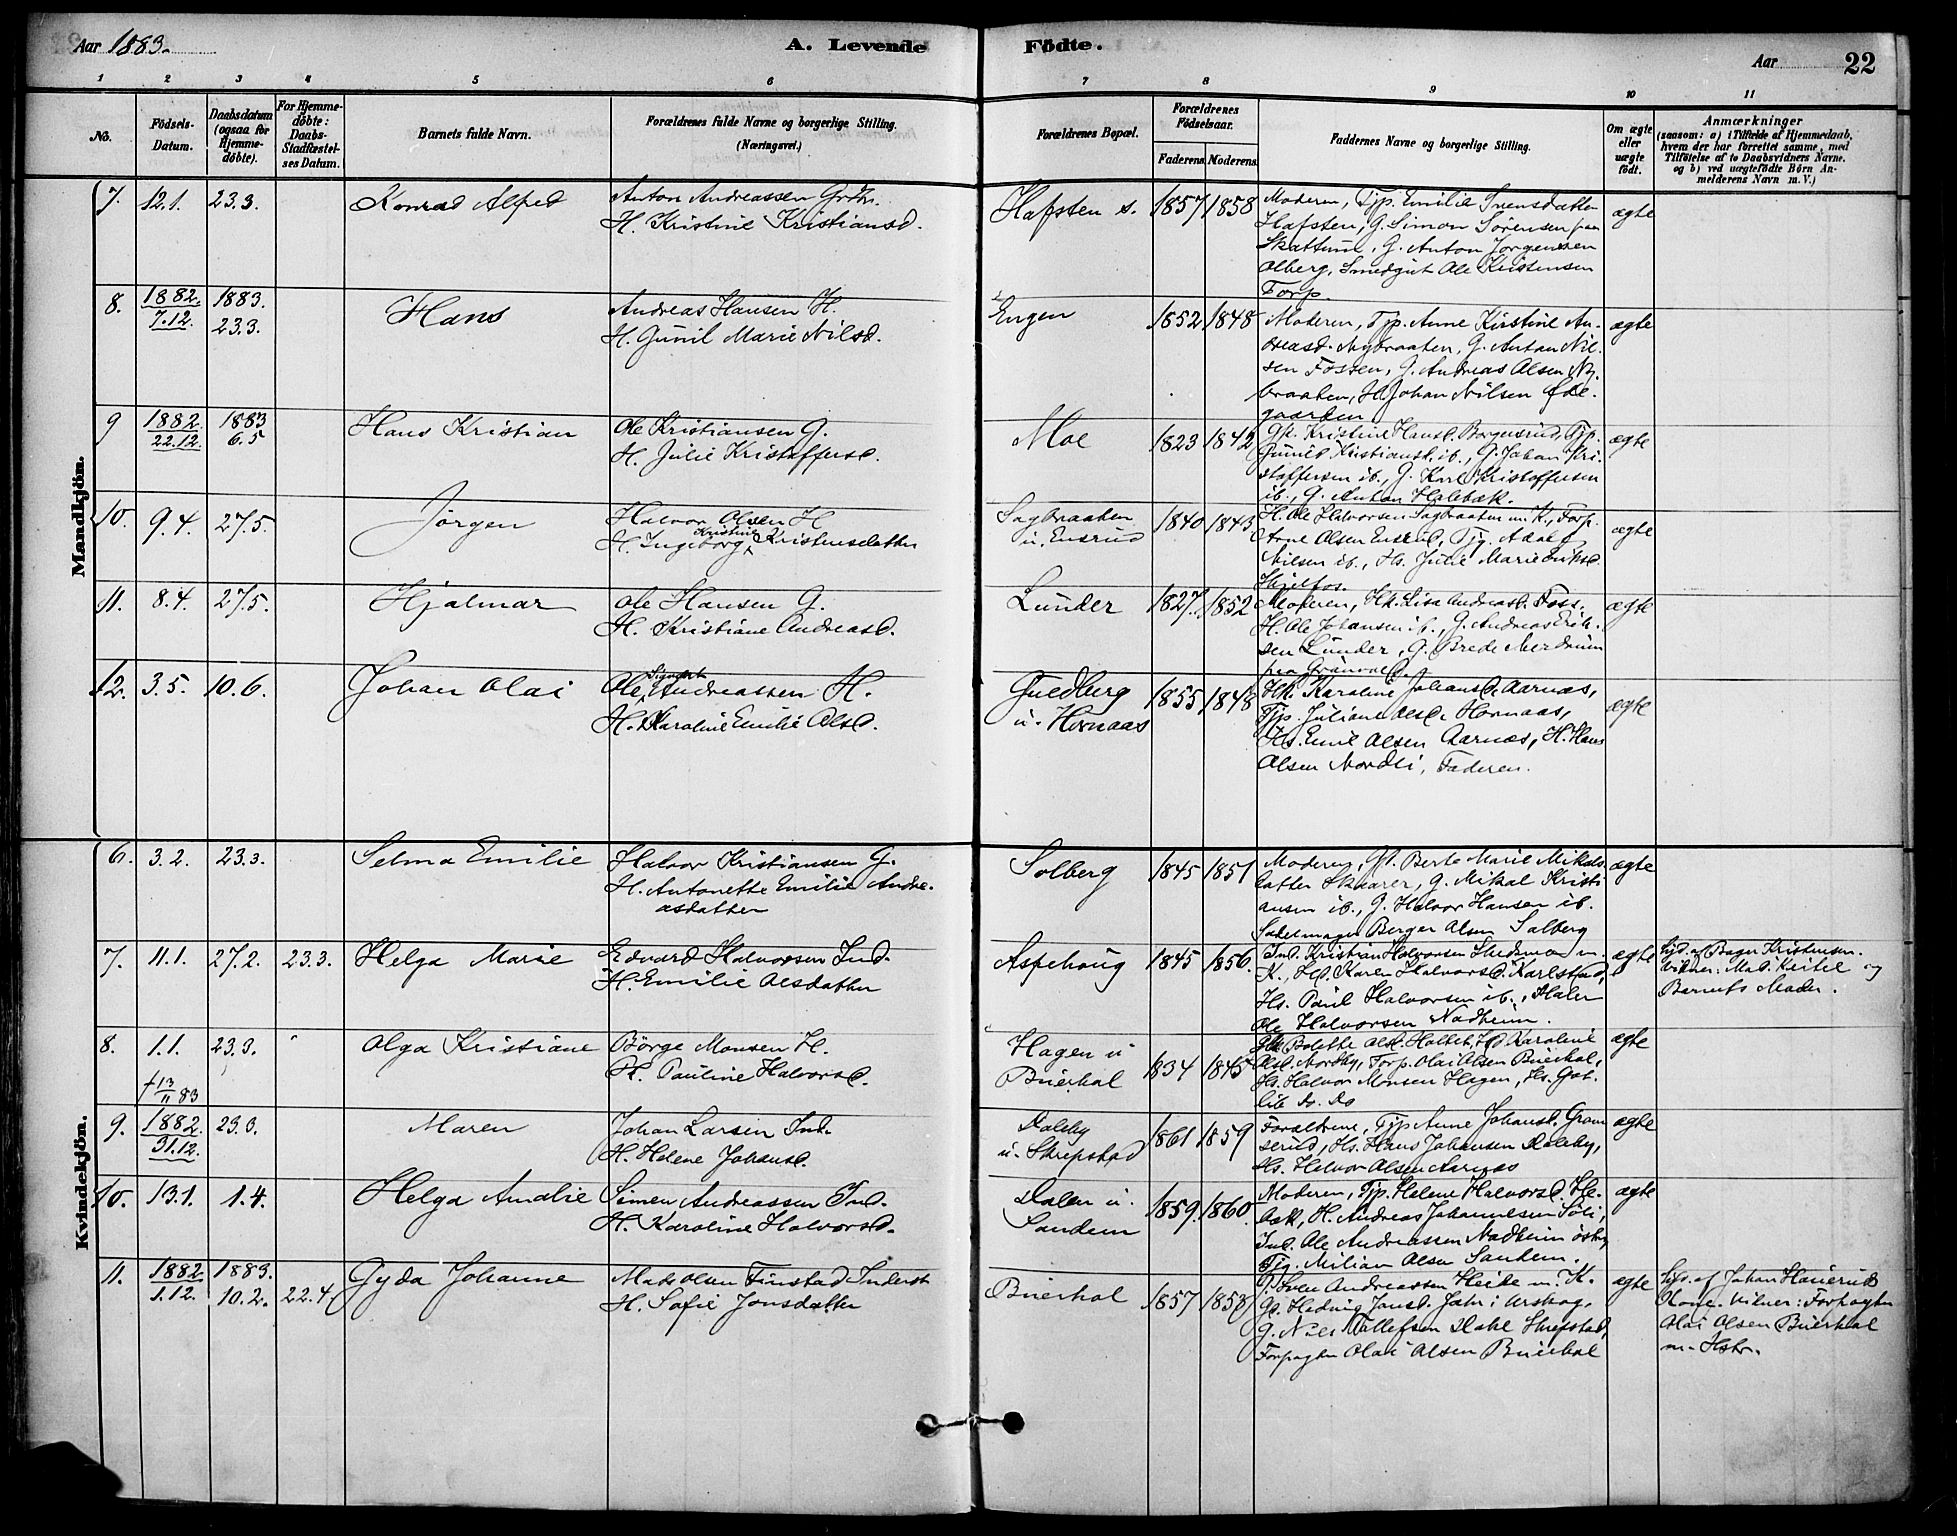 Aar 1883.
A. Levende Fødte.
Aar 22
1 2 3 4 5 6 7 8 9 10 11
No.
Fødsels-Datum.
Daabsdatum (ogsaa for Hjemme-døbte).
For Hjemme-døbte: Daabs-Stadfæstel-ses Datum.
Barnets fulde Navn.
Forældrenes fulde Navne og borgerlige Stilling.
(Næringsvei.)
Forældrenes Bopæl.
Forældrenes Fødselsaar.
Faderens. Moderens.
Faddernes Navne og borgerlige Stilling.
Om ægte eller uægte født.
Anmærkninger
(saasom: a) i Tilfælde af Hjemmedaab,
hvem der har forrettet samme, med
Tilføielse af to Daabsvidners Navne.
og b) ved uægtefødte Børn An-
melderens Navn m. V.)
Mandkjøn.
7. 12.1. 23.3. Konrad Alfred
Anton Andreassen Grdbr.
H. Kristine Kristiansd.
Hafsten s. 1857 1858
Moderen, Tjp. Emilie Svensdatter
Hafsten, G. Simon Sørensen fra
Skattum, G. Anton Jørgensen
Olberg, Smedgut Ole Kristensen
Torp.
ægte
8. 1882. 7.12. 1883. 23.3. Hans
Andreas Hansen H.
H. Gunil Marie Nilsd.
Engen 1852 1848
Moderen, Tjp. Anne Kirstine An-
dreasd. Nybraaten, G. Anton Nil-
sen Fossen, G. Andreas Olsen Ny-
braaten, H. Johan Nilsen Øde-
gaarden
ægte
9 1882. 22.12. 1883 6.5 Hans Kristian
Ole Kristiansen G.
H. Julie Kristoffersd.
Moe 1823 1842
Gk. Kristine Hansd. Borgersrud, Tjp.
Gunild Kristiansd. ib., G. Johan Kri-
stoffersen ib., G. Karl Kristoffersen
ib., G. Anton Holebæk.
ægte
10. 9.4. 27.5. Jørgen
Halvor Olsen H
H. Ingeborg Kristine Kristensdatter
Sagbraaten u. Ensrud 1840 1843
H. Ole Halvorsen Sagbraaten m. K., Forp.
Arne Olsen Ensrud, Tjg. Adolf
Nilsen ib., Hs. Julie Marie Eriksd.
Kjelfos.
ægte
11. 8.4. 27.5. Hjalmar
Ole Hansen G.
H. Kristiane Andreasd.
Lunder 1827. 1852
Moderen, Hk. Lisa Andreasd. Foss.
H. Ole Johansen ib., G. Andreas Erik-
sen Lunder, G. Brede Merdrum
fra Grønvold.
ægte
12. 3.5. 10.6. Johan Olai
Ole Sigvart Andreassen H.
H. Karoline Emilie Olsd.
Tuedberg u. Hornaas 1855 1848
Hk. Karoline Johansd. Aarnæs,
Tjp. Juliane Olsd. Hornaas,
Hs. Emil Olsen Aarnæs, H. Hans
Olsen Nordli, Faderen.
ægte
Kvindekjøn.
6. 3.2. 23.3. Selma Emilie
Halvor Kristiansen G.
H. Antonette Emilie Andre-
asdatter
Solberg 1845 1851
Moderen, Gk. Berte Marie Mikels-
datter Skaarer, G. Mikal Kristi
ansen ib., G. Halvor Hansen ib.
Sadelmager Berger Olsen Solberg
ægte
7. 11.1. 27.2. 23.3. Helga Marie
Edvard Halvorsen Ind.
H. Emilie Olsdatter
Aspehaug 1845 1856
Ind. Kristian Halvorsen Skedsmo m.
K., Hd. Karen Halvorsd. Karlstad,
Hs. Paul Halvorsen ib., Maler
Ole Halvorsen Nadheim.
ægte
Hjd. af Bager Kristensen.
Vidner: Mad. Keitel og
Barnets Moder.
8. 1.1. 23.3. Olga Kristiane
† 13/11 83
Børge Monsen H.
H. Pauline Halvorsd.
Hagen u Buerhol 1834 1845
Gk. Bolette Olsd. Hollet, Hd Karoline
Olsd. Nordby, Forp. Olai Olsen Buerhol,
Hs. Halvor Monsen Hagen, Hs. Got-
lib do. do
ægte
9. 1882 31.12. 23.3. Maren
Johan Larsen Ind.
H. Helene Johansd.
Daleby u. Skrepstad 1861 1859
Forældrene, Tjp Anne Johansd. Gram
serud, Hs. Hans Johansen Daleby,
Hs. Halvor Olsen Aarnæs
ægte
10. 13.1. 1.4. Helga Amalie
Simen Andreassen Ind.
H. Karoline Halvorsd.
Dalen u. Sandem 1859. 1860.
Moderen, Tjp. Helene Halvorsd. Ho-
bæk, H. Andreas Johannesen Søli,
Ind. Ole Andreassen Nadheim østre
Tjg. Milian Olsen Sandem.
ægte
11. 1882 1.12. 1883. 10.2. 22.4. Gyda Johanne
Mads Olsen Finstad Inderst
H. Sofie Jonsdatter
Buerhol 1857 1853
P. Sven Andreassen Heide m. K.
Gp. Hedvig Jonsd. Jahr i Urskog,
G. Nils Tollefsen Dahl Skrepstad,
Forpagter Olai Olsen Buerhol
ægte
Hjd. af Johan Hauerud
Olone. Vidner: Forpagter
Olai Olsen Buerhol
m. Hstr.